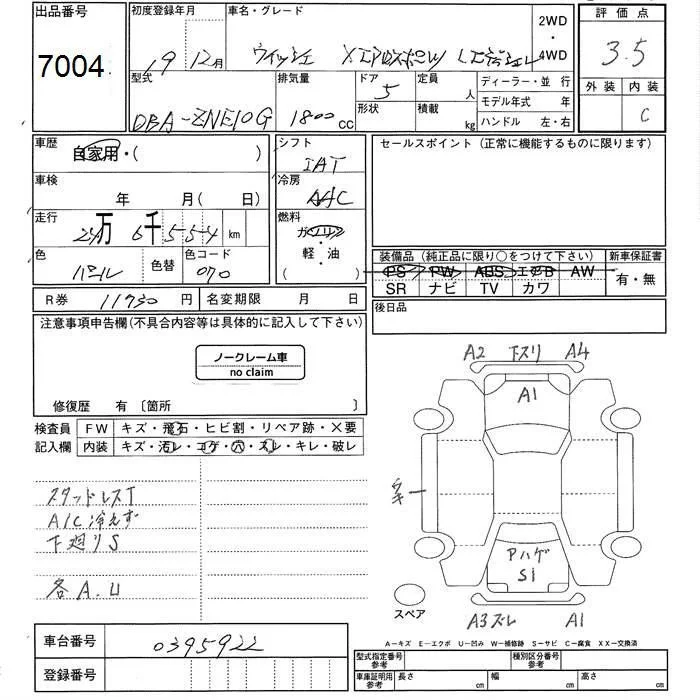 出品番号
7004
初度登録年月
19 12月
車名・グレード
ウィッシュ X エアロスポーツ
2WD
・
4WD
評価点
3.5
外装 内装
C
型式
DBA-ZNE10G
排気量
1800 CC
ドア
5
形状
定員
人
積載
kg
ディーラー・並 行
モデル年式 年
ハンドル 左・右
車歴
自家用・( )
シフト
IAT
セールスポイント (正常に機能するものに限ります)
車検
年 月( 日)
冷房
AAC
走行
万 6千 5 5 4 km
燃料
ガソリン
軽・油
( )
色
パール
色替
色コード
070
装備品 (純正品に限り○をつけて下さい)
新車保証書
PS PW ABS エアB AW
SR ナビ TV カワ
有・無
R券 11730 円
名変期限 月 日
後日品
注意事項申告欄(不具合内容等は具体的に記入して下さい)
ノークレーム車
no claim
修復歴 有 〔箇所 〕
検査員
記入欄
FW キズ・飛石・ヒビ割・リペア跡・×要
内装 キズ・汚レ・コゲ・穴・スレ・キレ・破レ
スタッドレスT
A/C冷えず
下廻りS
各A.U
A2 下スリ A4
A1
キー
Aハゲ
S1
スペア
A3ズレ A1
A-キズ E-エクボ U-凹み W-補修跡 S-サビ C-腐食 XX-交換済
車台番号
0395922
登録番号
型式指定番号
参考
種別区分番号
参考
車庫証明用
参考
長さ cm
幅 cm
高さ cm